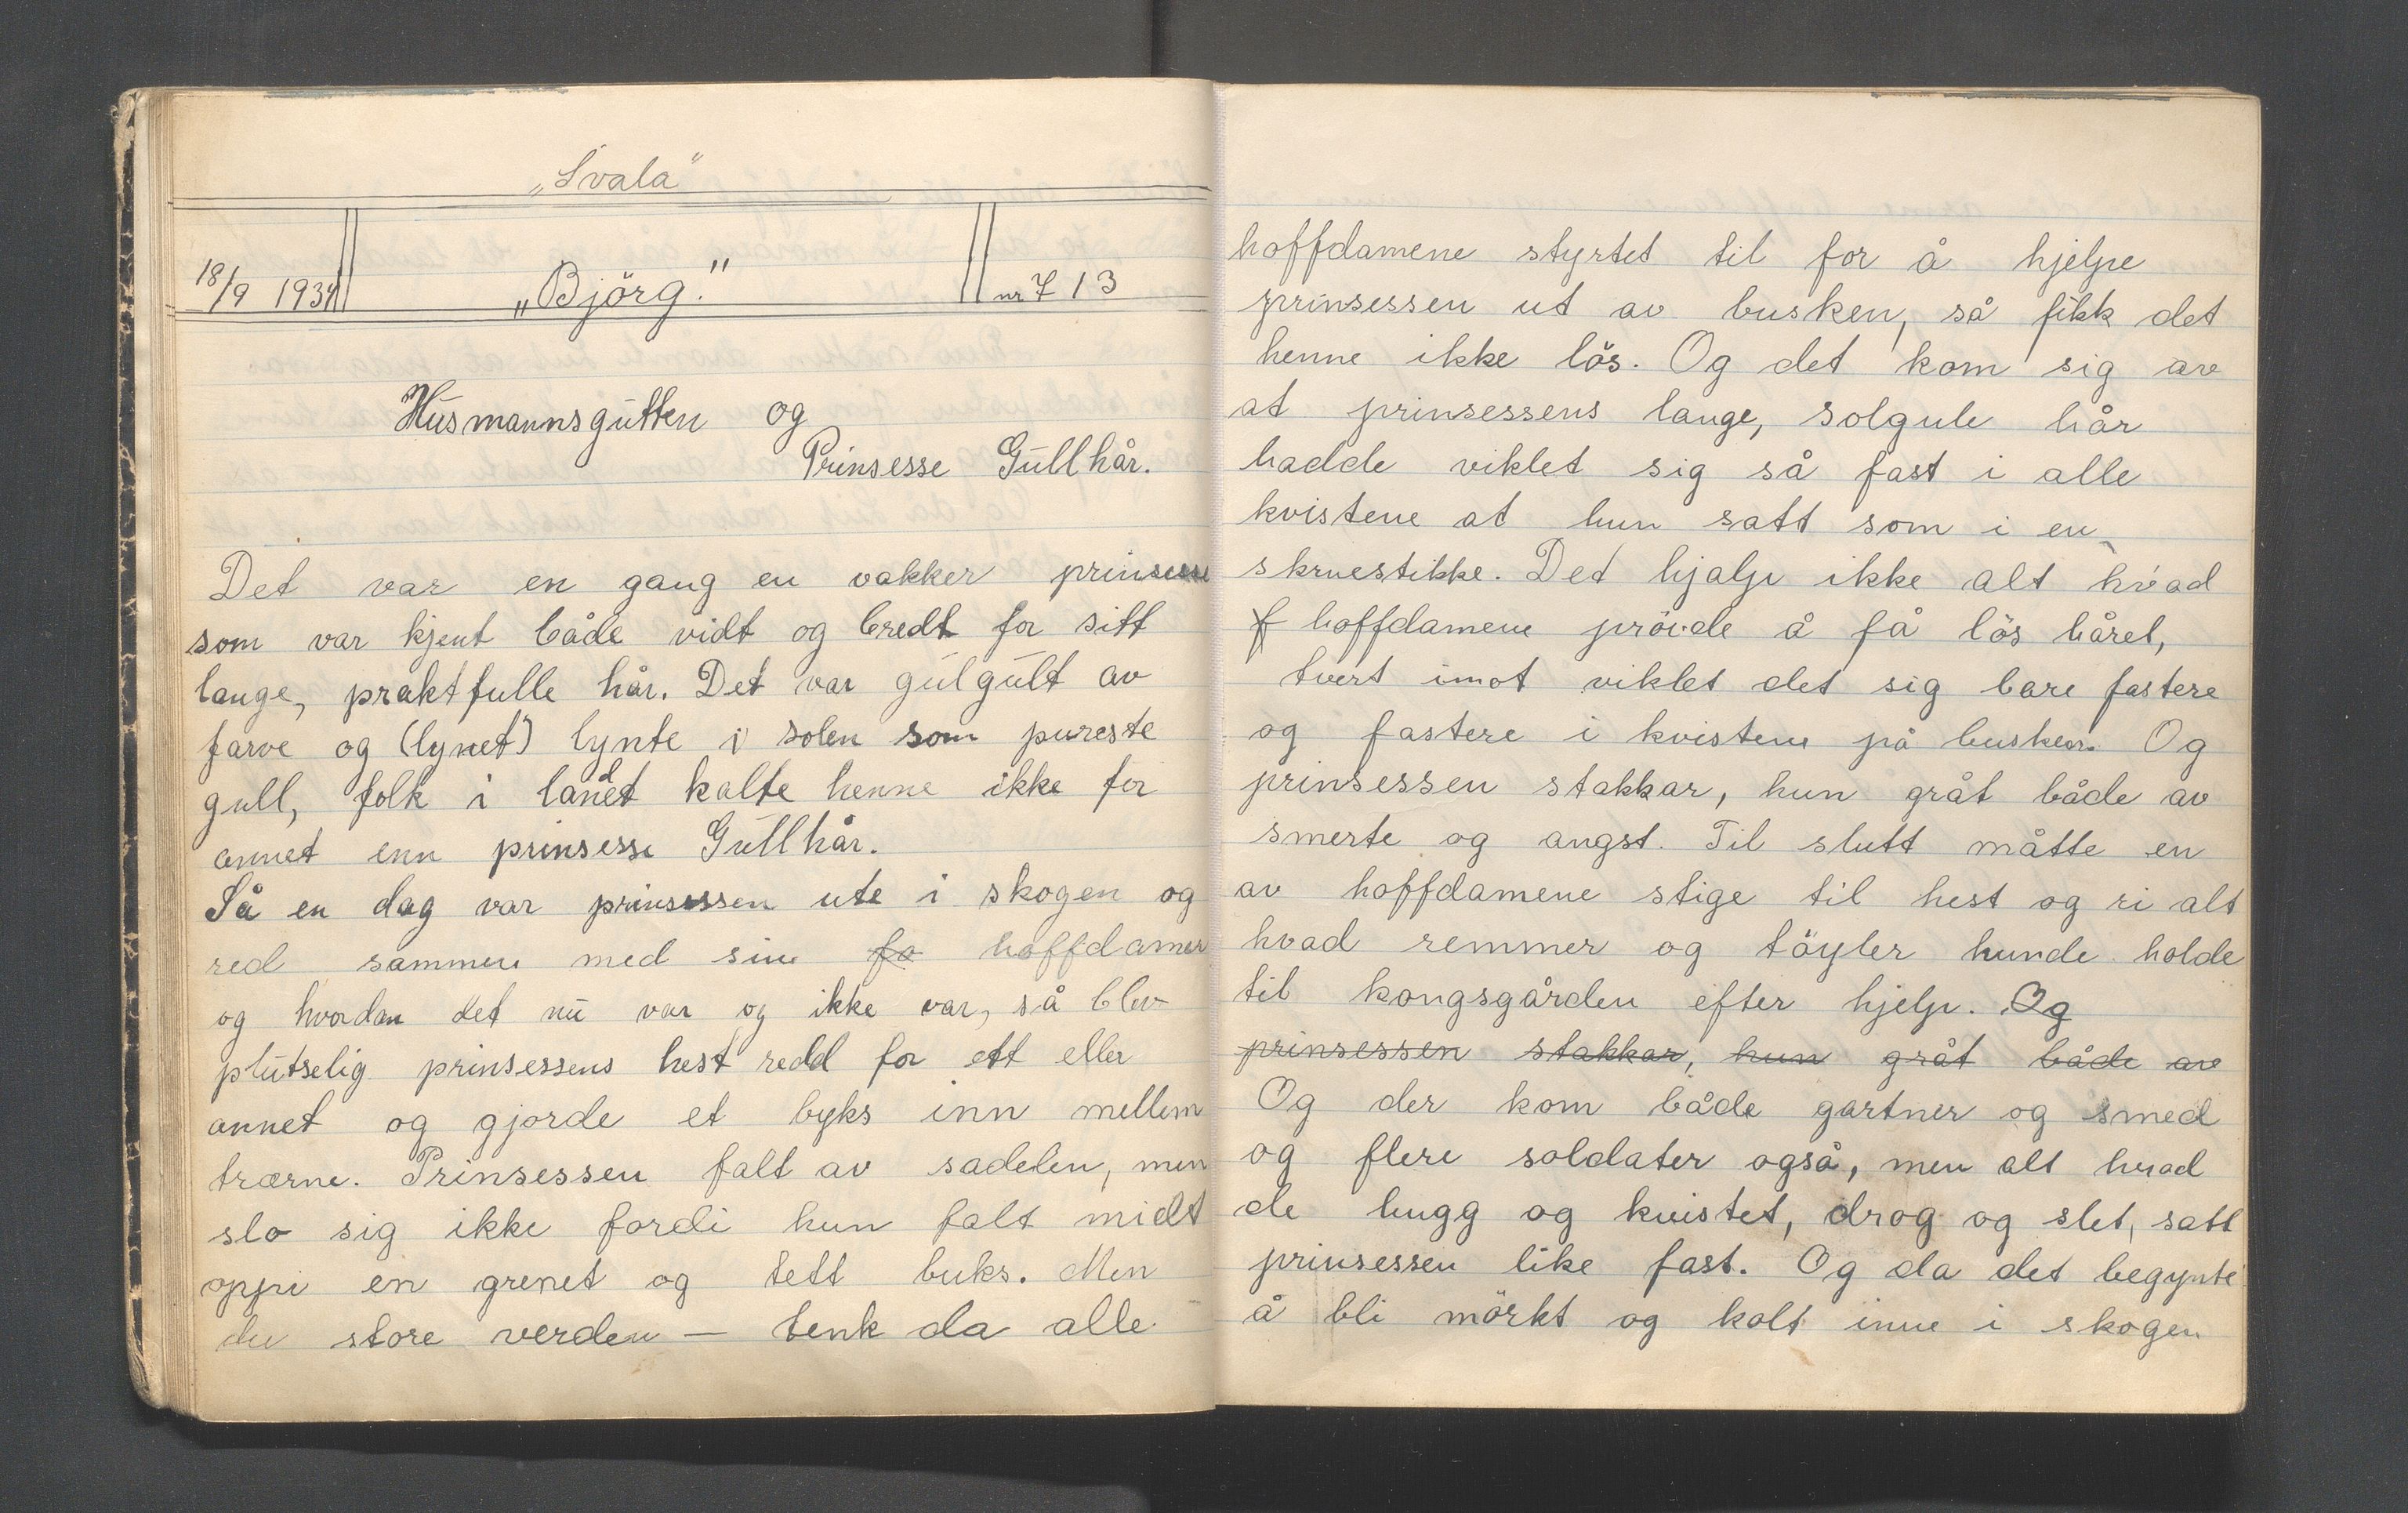 „Svala"
18/9 1934
„Björg."
nr 7 13
Husmannsgutten og
Prinsesse Gullhår.
Det var en gang en vakker prinsesse
som var kjent både vidt og bredt for sitt
lange, praktfulle hår. Det var gulgult av
farve og (lynet) lynte i solen som pureste
gull, folk i landet kalte henne ikke for
annet enn prinsesse Gullhår.
Så en dag var prinsessen ute i skogen og
red sammen med sine fo hoffdamer
og hvordan det nu var og ikke var, så blev
plutselig prinsessens hest redd for ett eller
annet og gjorde et byks inn mellem
trærne. Prinsessen falt av sadelen, men
slo sig ikke fordi hun falt midt
oppi en grenet og tett buks. Men
du store verden — tenk da alle
hoffdamene styrtet til for å hjelpe
prinsessen ut av busken, så fikk det
henne ikke lös. Og det kom sig av
at prinsessens lange, solgule hår
hadde viklet sig så fast i alle
kvistene at hun satt som i en
skruestikke. Det hjalp ikke alt hvad
f hoffdamene prövde å få lös håret,
tvert imot viklet det sig bare fastere
og fastere i kvistene på busken. Og
prinsessen stakkar, hun gråt både av
smerte og angst. Til slutt måtte en
av hoffdamene stige til hest og ri alt
hvad remmer og töyler kunde holde
til kongsgården efter hjelp. Og
prinsessen stakkar, hun gråt både av
Og der kom både gartner og smed
og flere soldater også, men alt hvad
de hugg og kvistet, drog og slet, satt
prinsessen like fast. Og da det begynte
å bli mörkt og kolt inne i skogen